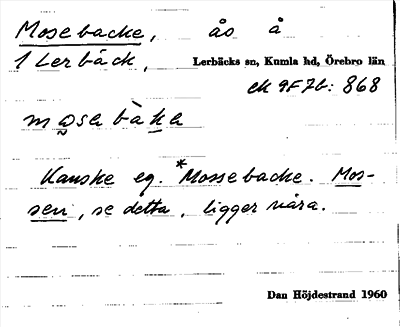 Mosebacke, ås å
1 Lerbäck, Lerbäcks sn, Kumla hd, Örebro län
ek 9F7b: 868
mɷsebàka
Kanske eg. *Mossebacke. Mos-
sen, se detta, ligger nära.
Dan Höjdestrand 1960